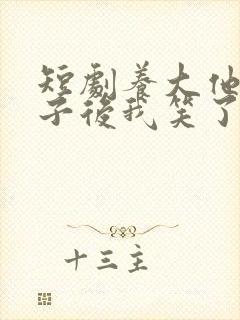 短劇養大他
子後我笑了
十三主